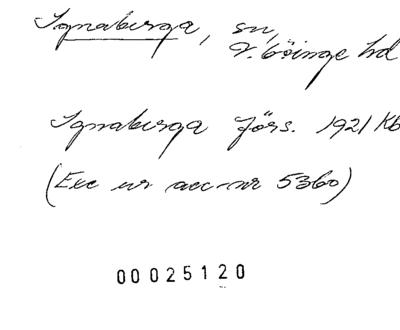 Ignaberga, sn,
V. Göinge hd
Ignaberga förs. 1921 Kb
(Exc ur acc-nr 5360)
00025120